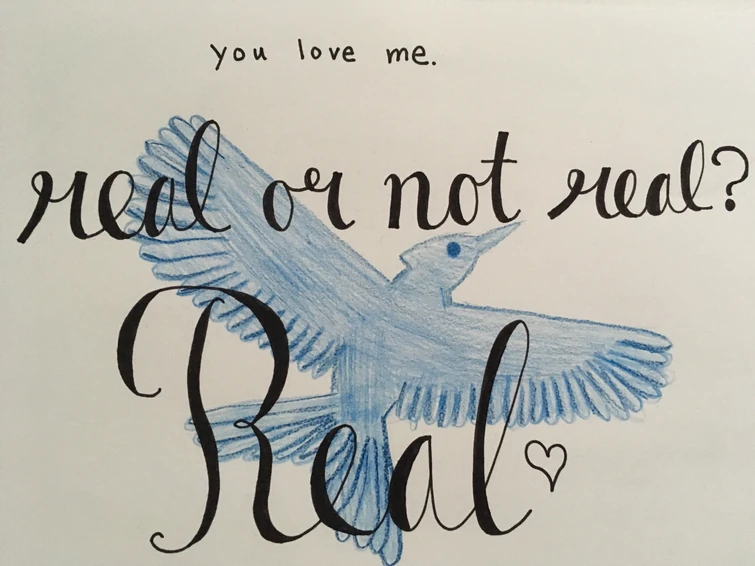 you love me.
real or not real?
Real